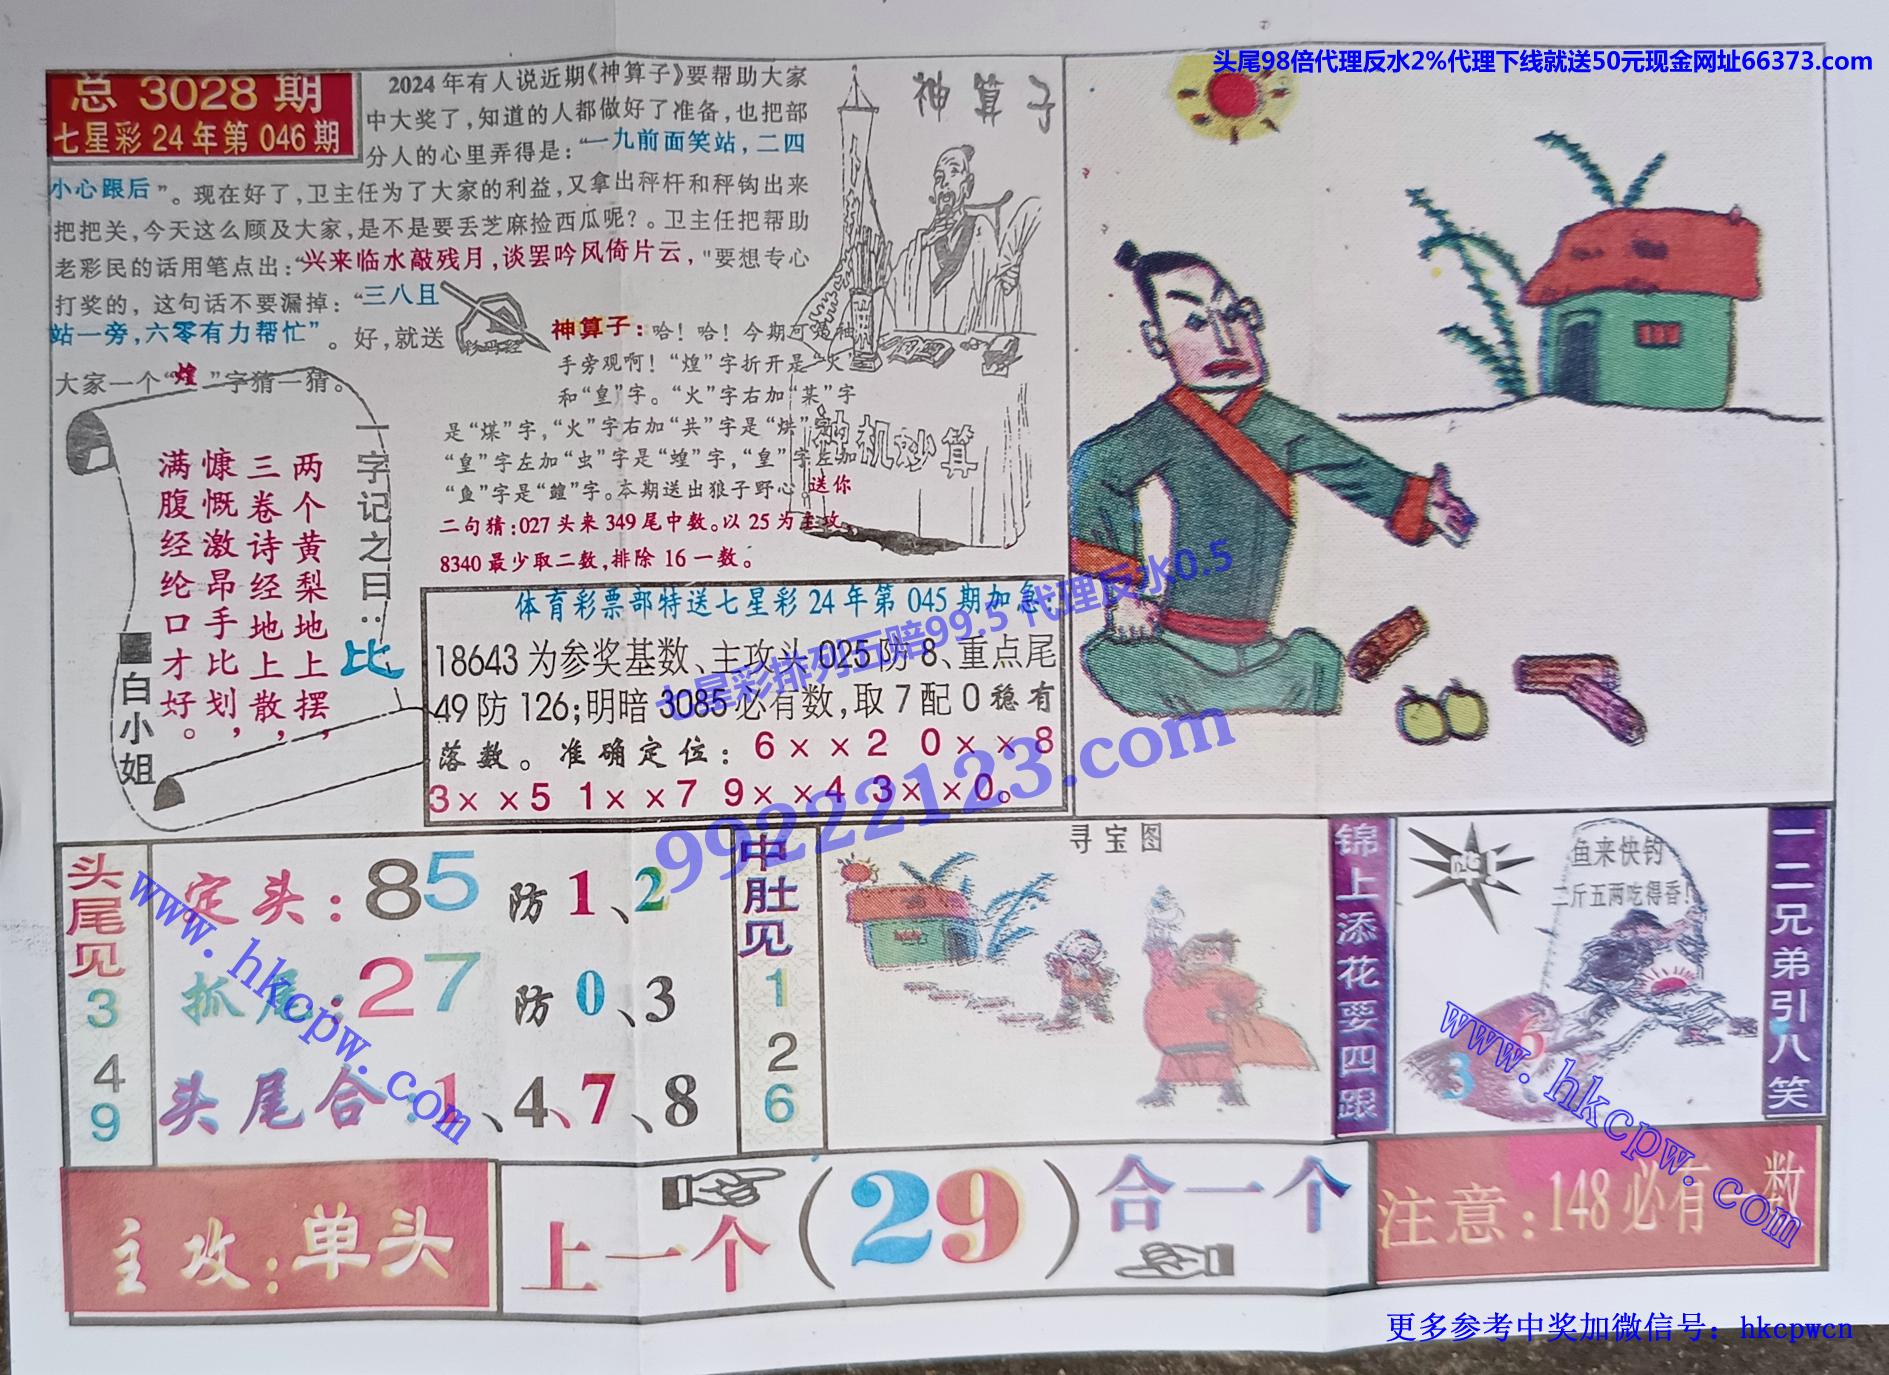 头尾98倍代理反水2%代理下线就送50元现金网址66373.com
总 3028 期
七星彩 24 年第 046 期
2024 年有人说近期《神算子》要帮助大家
中大奖了，知道的人都做好了准备，也把部
分人的心里弄得是：“一九前面笑站，二四
小心跟后”。现在好了，卫主任为了大家的利益，又拿出秤杆和秤钩出来
把把关，今天这么顾及大家，是不是要丢芝麻捡西瓜呢？。卫主任把帮助
老彩民的话用笔点出：“兴来临水敲残月，谈罢吟风倚片云，"要想专心
打奖的，这句话不要漏掉：“三八且
站一旁，六零有力帮忙”。好，就送
大家一个“煌”字猜一猜。
神算子
神算子：哈！哈！今期可是袖
手旁观啊！“煌”字折开是“火”
和“皇”字。“火”字右加“某”字
是“煤”字，“火”字右加“共”字是“烘”字
“皇”字左加“虫”字是“蝗”字，“皇”字左加
“鱼”字是“鳇”字。本期送出狼子野心。送你
二句猜：027 头来 349 尾中数。以 25 为主攻，
8340 最少取二数，排除 16 一数。
神机妙算
一字记之曰：比
两个黄梨地上摆，
三卷诗经地上散，
慷慨激昂手比划，
满腹经纶口才好。
白小姐
体育彩票部特送七星彩 24 年第 045 期加急
18643 为参奖基数、主攻头 025 防 8、重点尾
49 防 126；明暗 3085 必有数，取 7 配 0 稳有
落数。准确定位：6××2 0××8
3××5 1××7 9××4 3××0。
七星彩排列五赔99.5 代理反水0.5
99222123.com
头尾见 3 4 9
定头：85 防 1、2
抓尾：27 防 0、3
头尾合：1、4、7、8
www.hkcpw.com
中肚见 1 2 6
寻宝图
锦上添花要四跟
鱼来快钓
二斤五两吃得香！
3 6
www.hkcpw.com
一二兄弟引八笑
主攻：单头
上一个（29）合一个
注意：148 必有一数
更多参考中奖加微信号：hkcpwcn